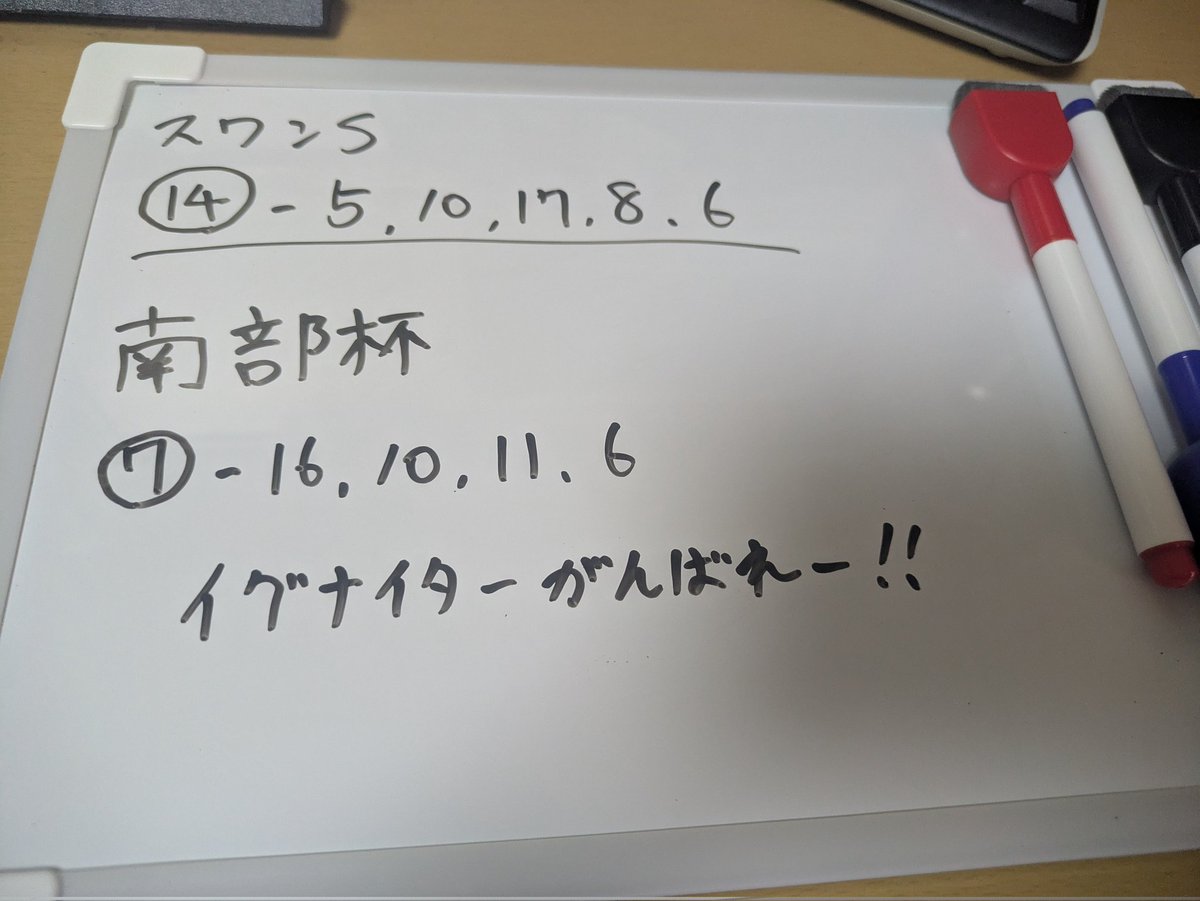 スワンS
⑭ - 5, 10, 17, 8, 6
南部杯
⑦ - 16, 10, 11, 6
イグナイターがんばれー!!